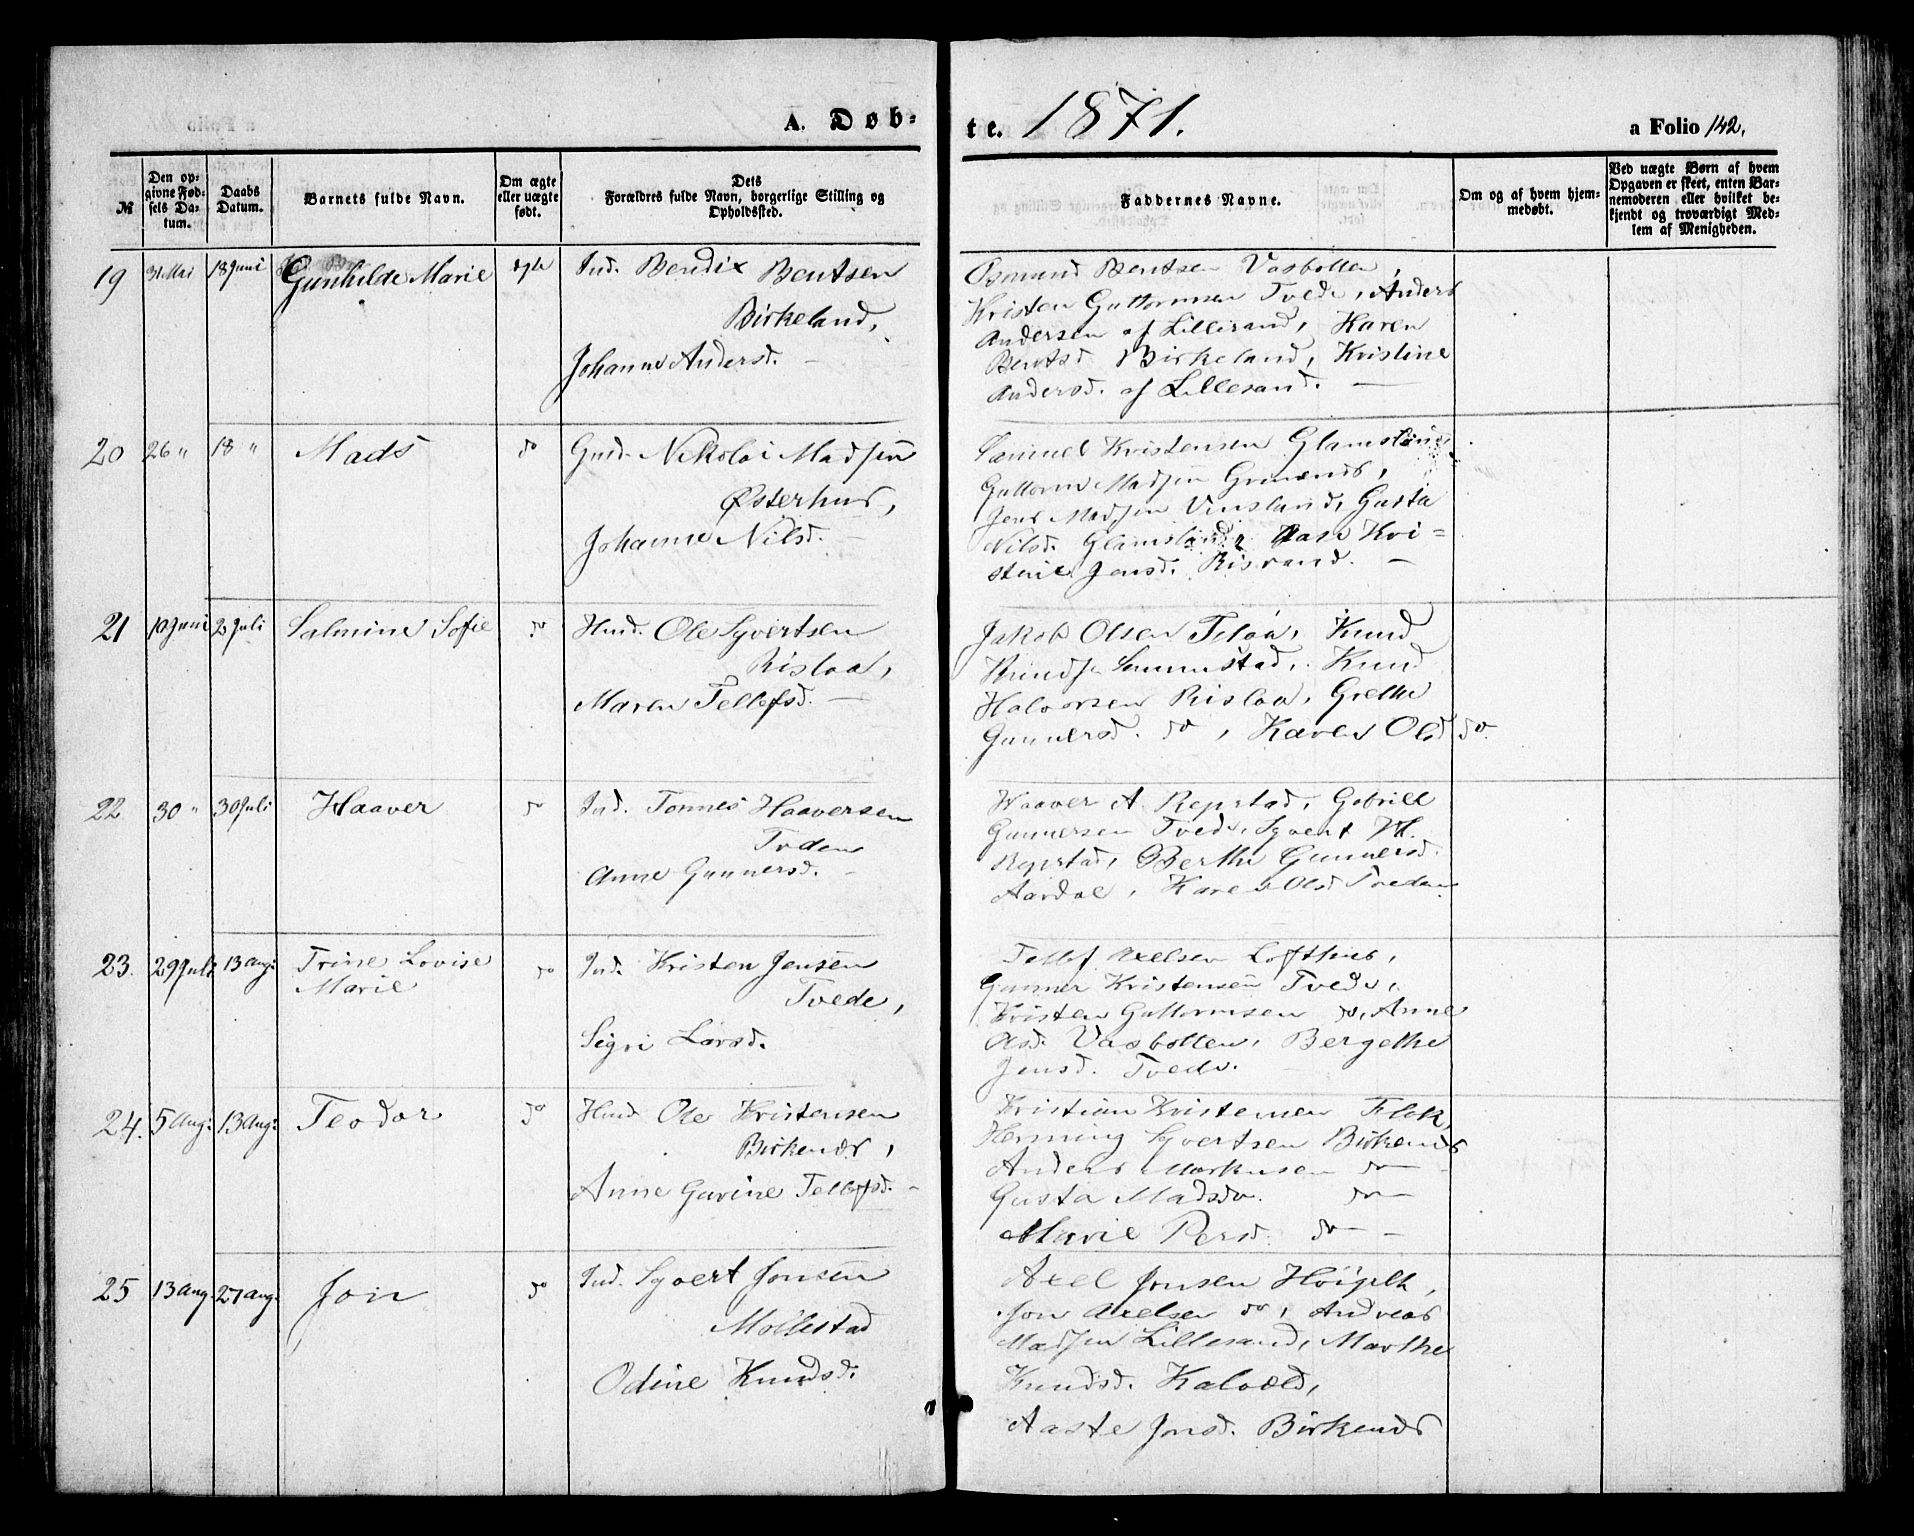 A. Døb-
te. 1871.
a Folio 142.
№
Den op-
givne Fød-
sels Da-
tum.
Daabs
Datum.
Barnets fulde Navn.
Om ægte
eller uægte
født.
Dets
Forældres fulde Navn, borgerlige Stilling og
Opholdssted.
Faddernes Navne.
Om og af hvem hjem-
medøbt.
Ved uægte Børn af hvem
Opgaven er skeet, enten Bar-
nemoderen eller hvilket be-
kjendt og troværdigt Med-
lem af Menigheden.
19
31 Mai
18 Juni
Gunhilde Marie
ægte
Ind. Bendix Bentsen
Birkeland,
Johanne Andersd. —
Osmund Bentsen Vasbotten,
Kristen Guttormsen Tvede, Anders
Andersen af Lillesand, Karen
Bentsd. Birkeland, Kristine
Andersd. af Lillesand. —
20
26 "
18 "
Mads
do
Gmd. Nikolai Madsen
Østerhus,
Johanne Nilsd. —
Samuel Kristensen Glamsland,
Guttorm Madsen Grimenes,
Jens Madsen Vensland, Gusta
Nilsd. Glamsland, Aase Kri-
stine Jensd. Risvand. —
21
10 Juni
2 Juli
Salmine Sofie
do
Hmd. Ole Syvertsen
Risløa,
Maren Tellefsd. —
Jakob Olsen Fløa, Knud
Knudsen Sennestad, Knud
Halvorsen Risløa, Grethe
Gunnersd. do, Karen Olsd do.
22
30 "
30 Juli
Haaver
do
Ind. Tønnes Haaversen
Tveden
Anne Gunnersd. —
Haaver A Repstad, Gabriel
Gunnersen Tvede, Syvert H.
Repstad, Berthe Gunnersd.
Aardal, Karen Olsd Tveden.
23.
29 Juli
13 Aug:
Trine Lovise
Marie
do
Ind. Kristen Jensen
Tvede,
Sigri Larsd.
Tellef Axelsen Lofthus,
Gunner Kristensen Tvede,
Kristen Guttormsen do, Anne
Olsd. Vasbotten, Bergethe
Jensd. Tvede.
24.
5 Aug:
13 Aug:
Teodor
do
Hmd Ole Kristensen
Birkenes,
Anne Gurine Tellefsd. —
Kristian Kristensen Flak,
Henning Syvertsen Birkenes
Anders Markusen do —
Gusta Madsdr. do —
Marie Persd. do —
25
13 Aug.
27 Aug.
Jon
do
Ind. Syvert Jonsen
Mollestad
Odine Knudsd.
Axel Jonsen Høigilt,
Jon Axelsen do, Andreas
Madsen Lillesand, Marthe
Knudsd. Kalvold,
Aaste Jonsd. Birkenes